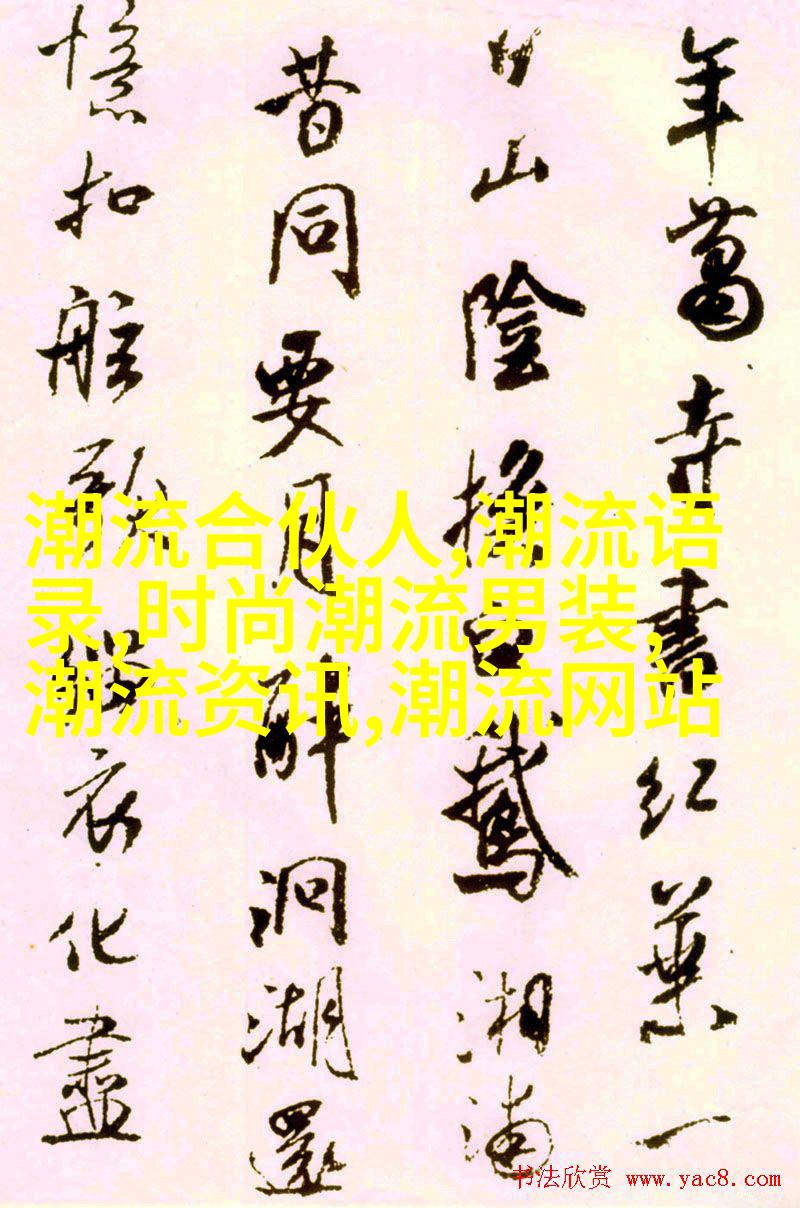 年蕭寺書紅葉一
日山陰換白鵝湘浦
昔同要月醉洞湖還
憶扣舷歌緇衣化盡
潮流合伙人,潮流语
录,时尚潮流男装,
潮流资讯,潮流网站
书法欣赏 www.yac8.com